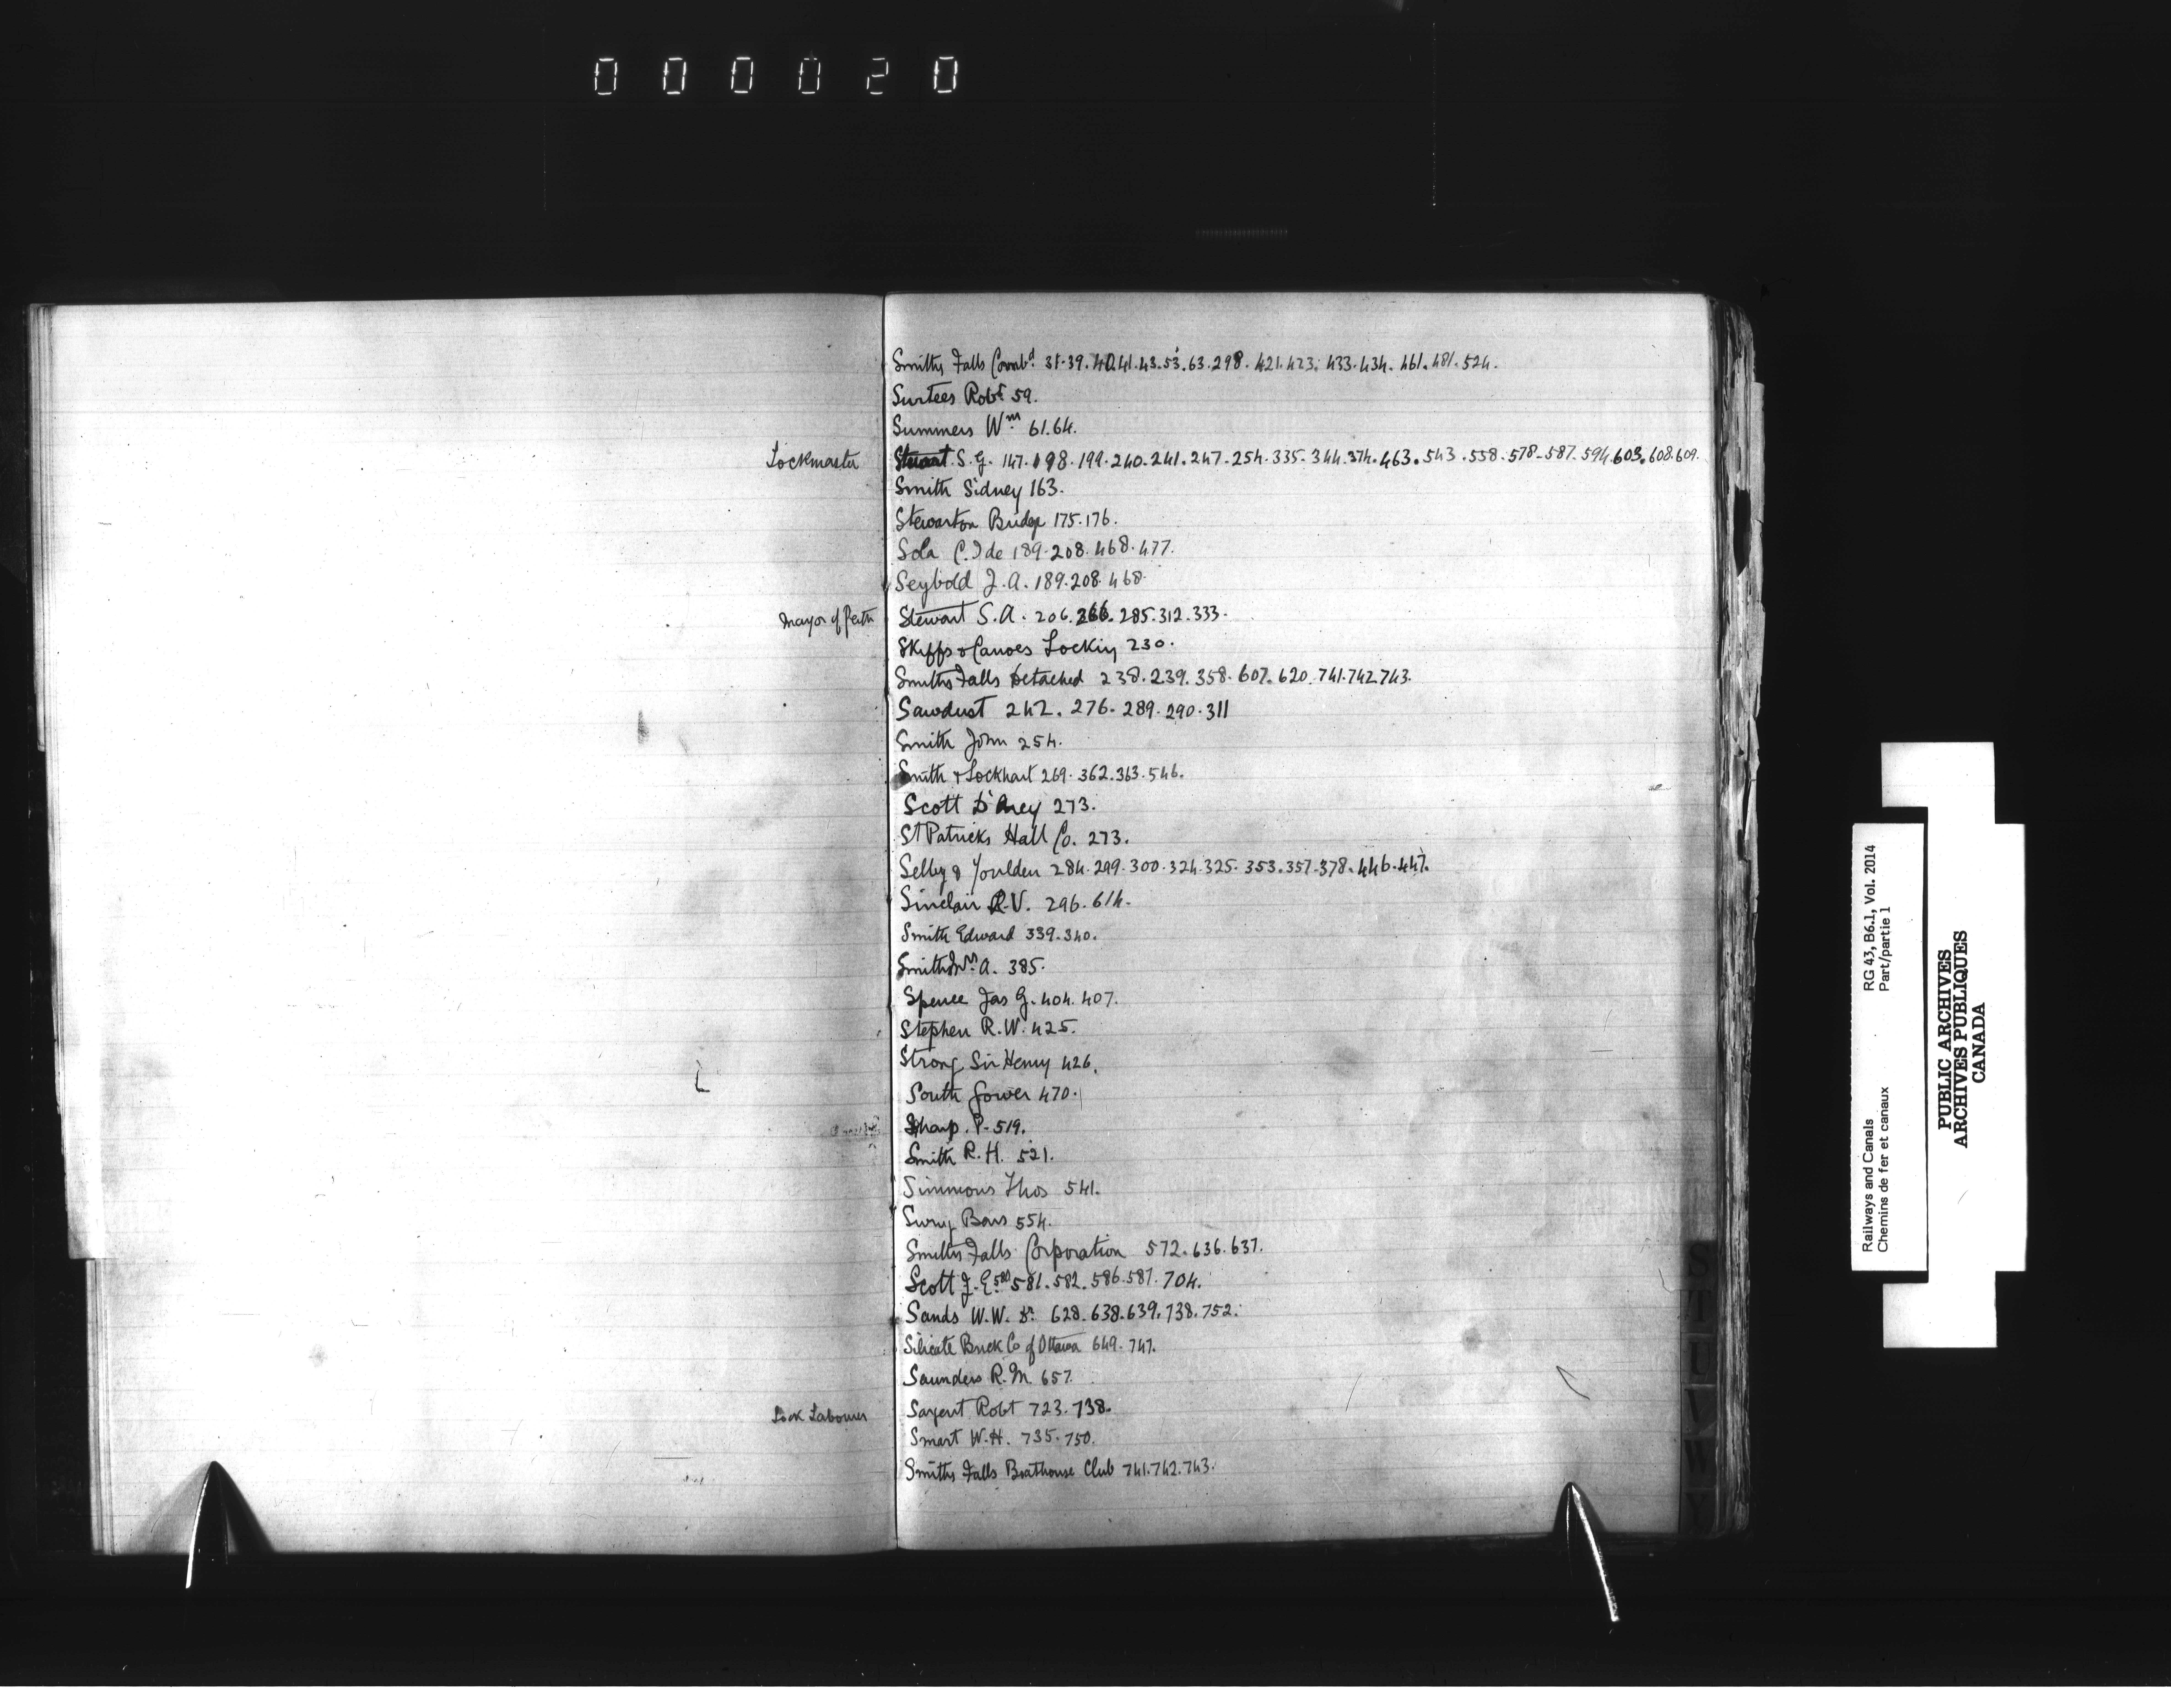 000020
Smiths Falls Combd. 31.39.40.41.43.53.63.298. 421.423. 433.434. 461. 481. 524.
Surtees Robt 59.
Summers Wm 61.64.
Lockmaster Stewart S.G. 147.198.199.240.241.247.254.335.344.374.463.543.558.578.587.594.603.608.609.
Smith Sidney 163.
Stewarton Bridge 175.176.
Sola C. I de 189.208.468.477.
Seybold J.A. 189.208.468.
Mayor of Perth Stewart S.A. 206.266.285.312.333.
Skiffs & Canoes Locking 230.
Smiths Falls Detached 238.239.358.607.620.741.742.743.
Sawdust 242.276.289.290.311
Smith John 254.
Smith & Lockhart 269.362.363.546.
Scott D'Arcy 273.
St Patricks Hall Co. 273.
Selby & Youlden 284.299.300.324.325.353.357.378.446.447.
Sinclair R.V. 296.614.
Smith Edward 339.340.
Smith Wm. A. 385.
Spence Jas G. 404.407.
Stephen R.W. 425.
Strong Sir Henry 426.
South Gower 470.
Sharp. P. 519.
Smith R.H. 521.
Simmons Thos 541.
Swing Bars 554.
Smiths Falls Corporation 572.636.637.
Scott J.E. 580 581.582.586.587.704.
Sands W.W. Dr. 628.638.639.738.752.
Silicate Brick Co of Ottawa 649.747.
Saunders R.M. 657.
Lock Labourer Sargent Robt 723.738.
Smart W.H. 735.750.
Smiths Falls Boathouse Club 741.742.743.
S
T
U
V
W
Y
Railways and Canals RG 43, B6.1, Vol. 2014
Chemins de fer et canaux Part/partie 1
PUBLIC ARCHIVES
ARCHIVES PUBLIQUES
CANADA